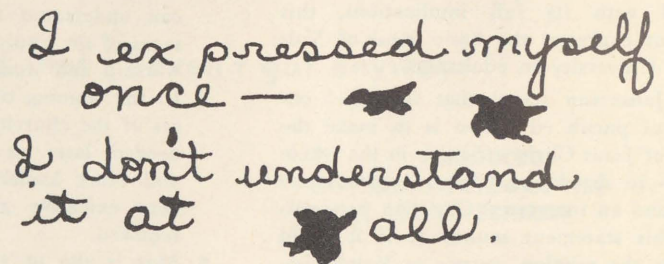 I ex pressed myself
once —
I don't understand
it at all.